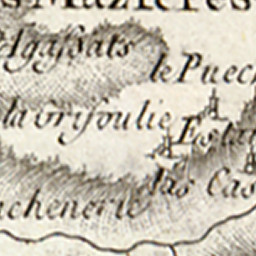 s Mazieres
elgaſsats
le Puech
la Griſoulie
Estan
las Cas
nchenerie